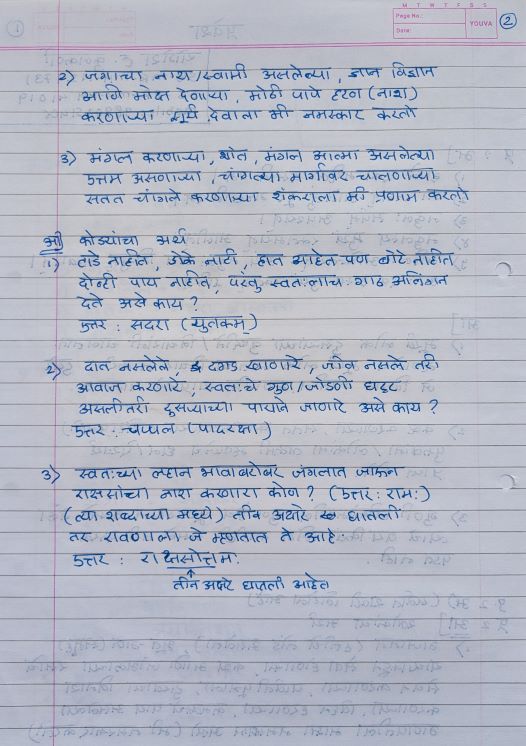 M T W T F S S
Page No.:
Date:
YOUVA
2
2) जगाचा नाथ/स्वामी असलेल्या, ज्ञान विज्ञान
आणि मोक्ष देणाऱ्या, मोठी पापे हरण (नाश)
करणाऱ्या सूर्य देवाला मी नमस्कार करतो
3) मंगल करणाऱ्या, शांत, मंगल आत्मा असलेल्या
उत्तम असणाऱ्या, चांगल्या मार्गावर चालणाऱ्या
सतत चांगले करणाऱ्या शंकराला मी प्रणाम करतो
आ) कोड्यांचा अर्थ
1) हाडे नाहीत, डोके नाही, हात आहेत पण बोटे नाहीत
दोन्ही पाय नाहीत, परंतु स्वतःलाच गाढ अलिंगन
देते असे काय?
उत्तर: सदरा (युतकम्)
2) दात नसलेले, दगड खाणारे, जीव नसले तरी
आवाज करणारे, स्वतःचे गुण/जोडणी घट्ट
असली तरी दुसऱ्याच्या पायाने जाणारे असे काय?
उत्तर: चप्पल (पादरक्षा)
3) स्वतःच्या लहान भावाबरोबर जंगलात जाऊन
राक्षसांचा नाश करणारा कोण? (उत्तर: रामः)
(त्या शब्दाच्या मध्ये) तीन अक्षरे घातली
तर रावणाला जे म्हणतात ते आहे.
उत्तर: राक्षसोत्तमः
तीन अक्षरे घातली आहेत